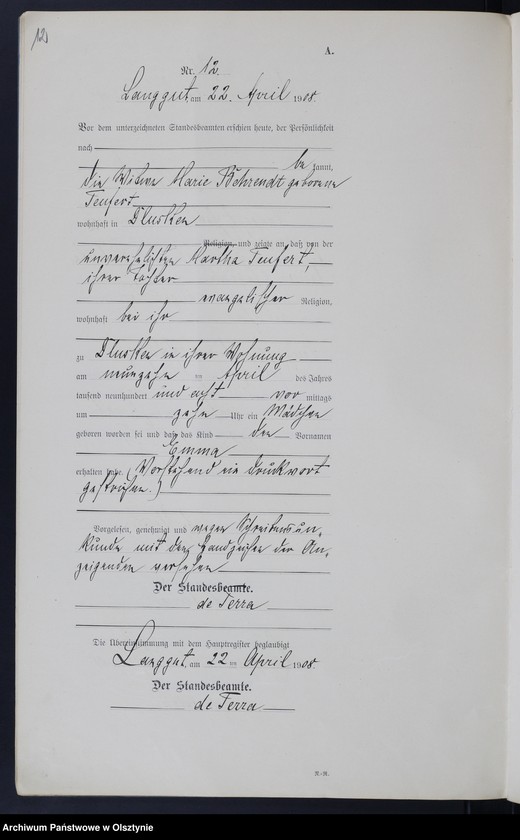 12
A.
Nr. 12.
Langgut, am 22. April 1908.
Vor dem unterzeichneten Standesbeamten erschien heute, der Persönlichkeit
nach
be kannt,
die Witwe Marie Behrendt geborene
Teufert
wohnhaft in Dlusken
Religion, und zeigte an, daß von der
unverehelichten Martha Teufert,
ihrer Tochter
evangelischer Religion,
wohnhaft bei ihr
zu Dlusken in ihrer Wohnung
am neunzehn ten April des Jahres
tausend neunhundert und acht vor mittags
um zehn Uhr ein Mädchen
geboren worden sei und daß das Kind den Vornamen
Emma
erhalten habe. (Vorstehend ein Druckwort
gestrichen.)
Vorgelesen, genehmigt und wegen Schreibensun-
kunde mit dem Handzeichen der An-
zeigenden versehen
Der Standesbeamte.
de Terra
Die Übereinstimmung mit dem Hauptregister beglaubigt
Langgut, am 22 ten April 1908.
Der Standesbeamte.
de Terra
R.-R.
Archiwum Państwowe w Olsztynie